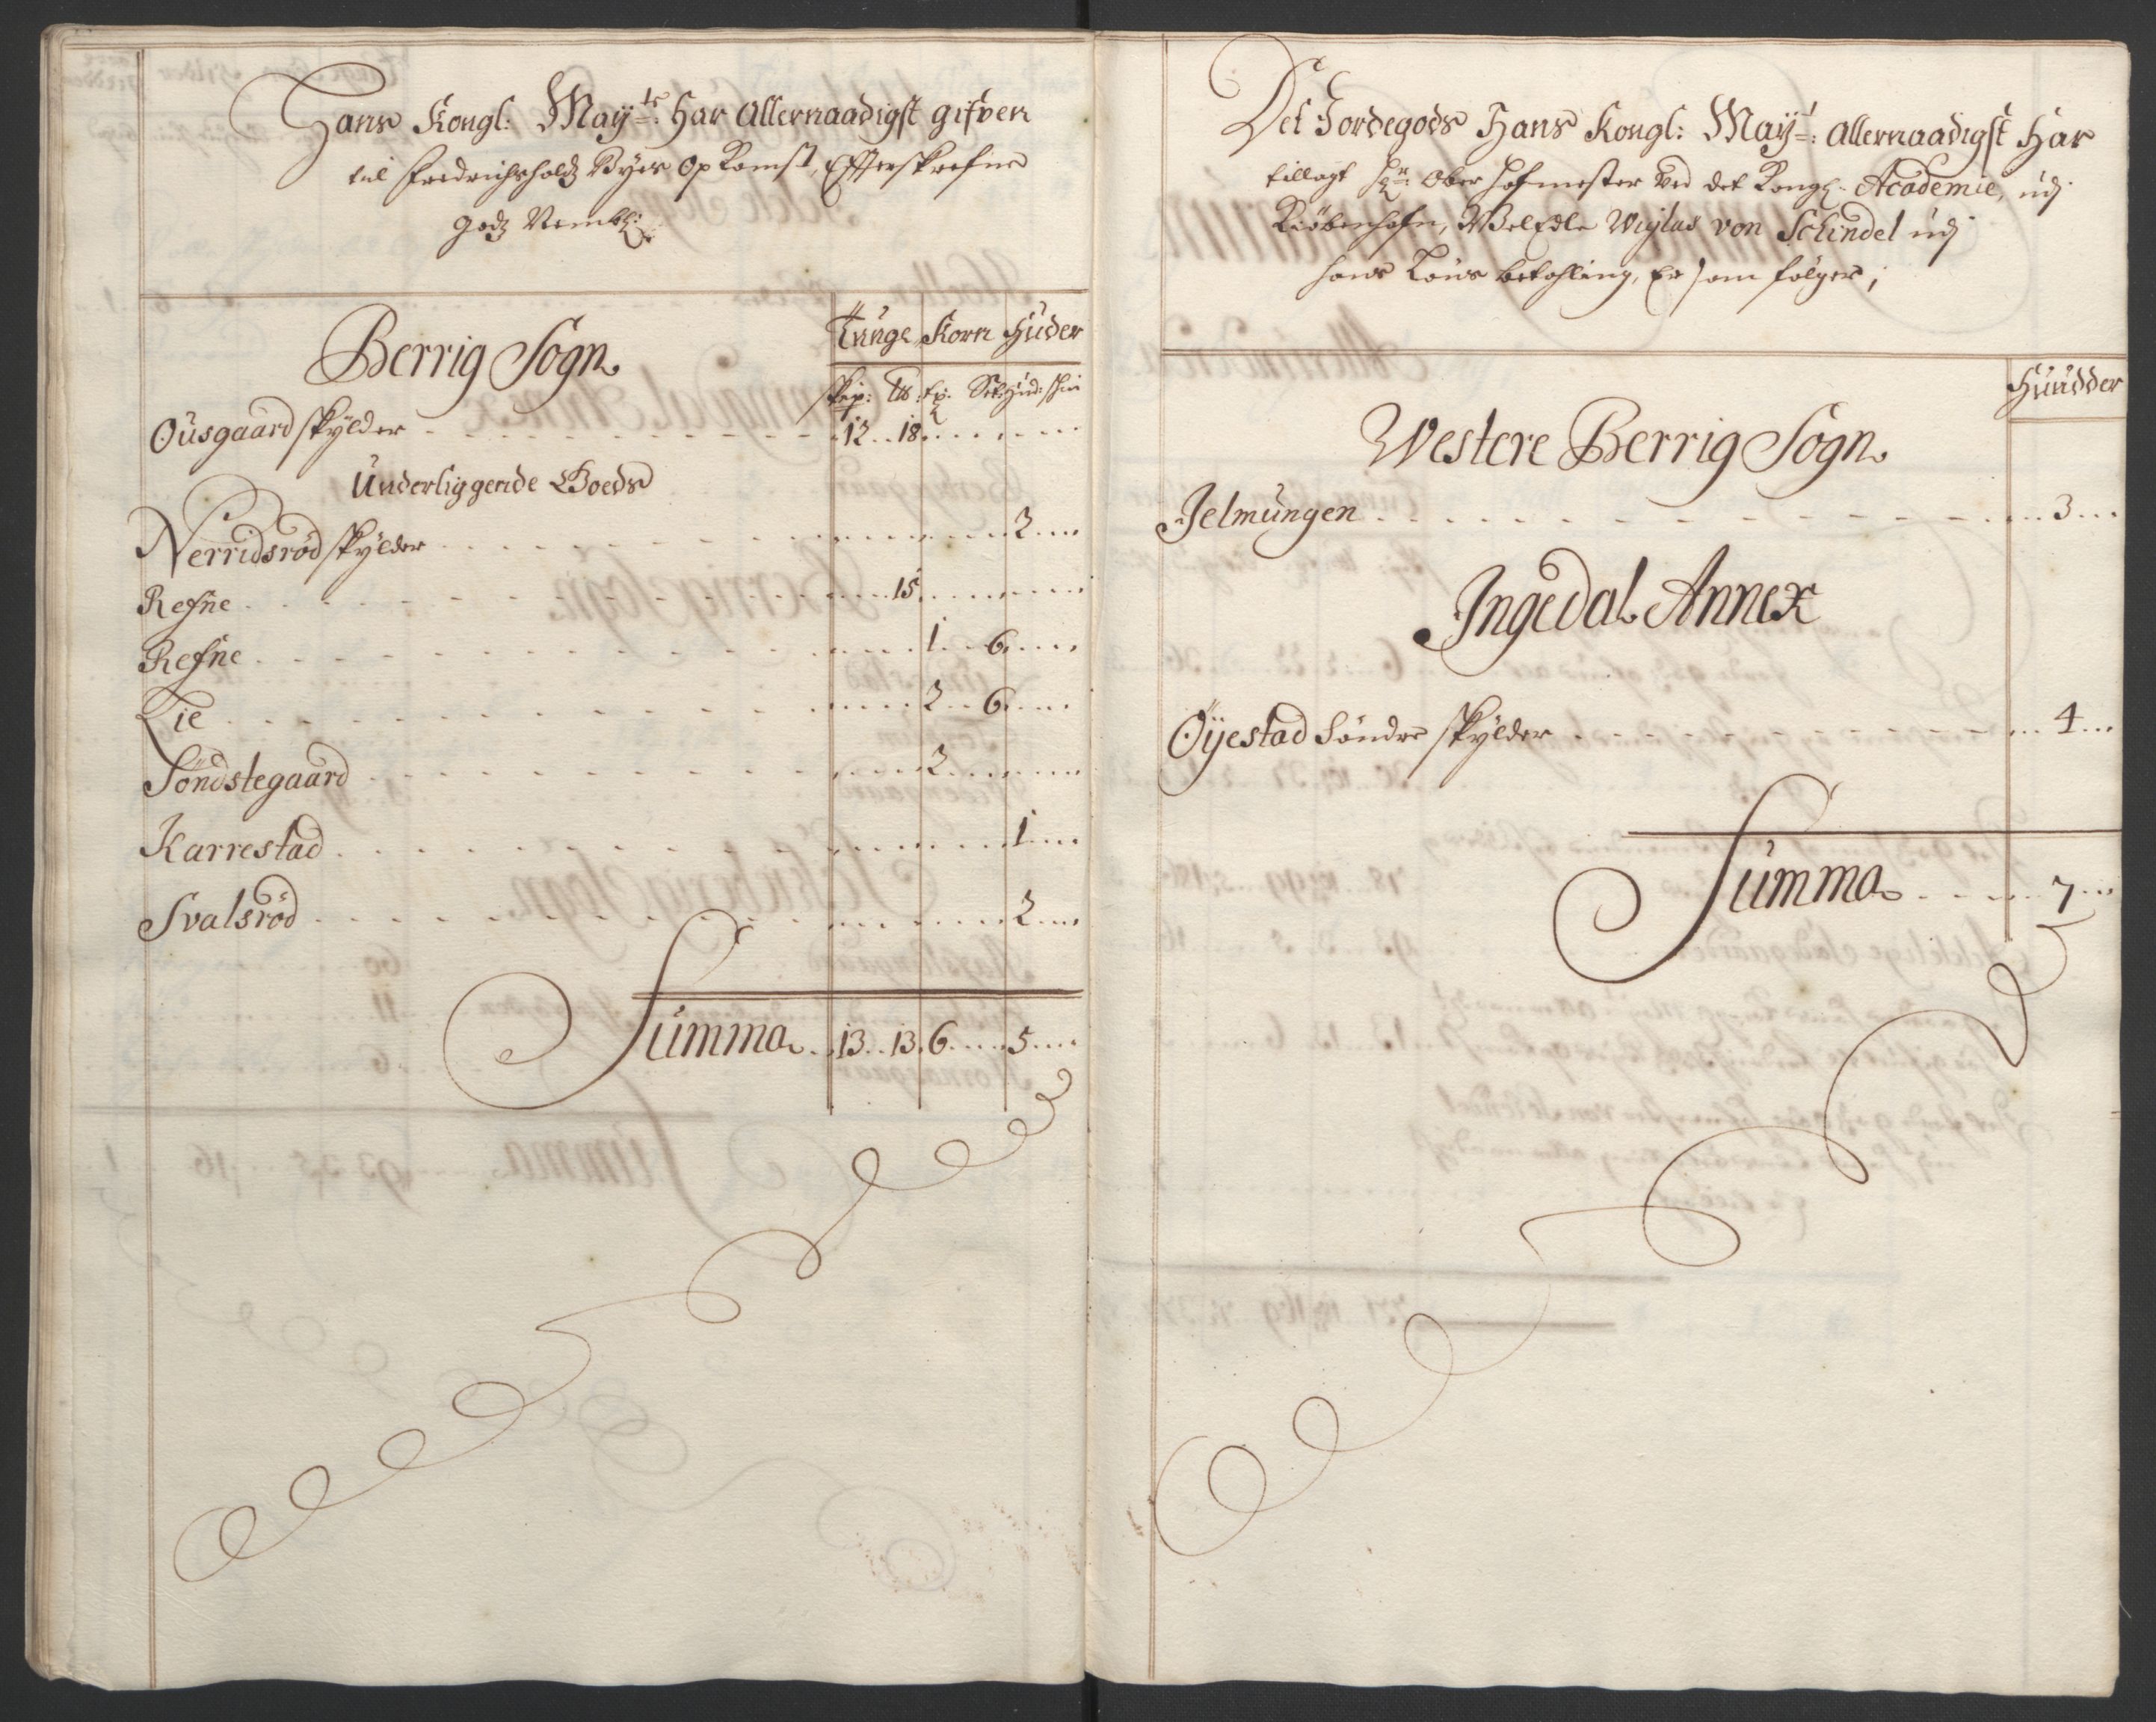 Hans Kongl: Mayts: Har Allernaadigst gifven
til Fredrichshalds Byes Opkomst, Effterskrefne
Godz Nembl:
Tunge Korn Huder
Berrig Sogn
Skip: Tb: Huder Skin
Ousgaard skylder 12 18
Underliggende Goeds
Nerridsrød skylder 2
Refne 15
Refne 1 6
Lie 2 6
Søndstegaard 2
Karrestad 1
Svalsrød 2
Summa 13 13 6 5
Det Jordegods Hans Kongl: Mayt: Allernaadigst Har
tillagt Hr: Ober Hofmester ved det Kongl: Academie, udj
Kiøbenhafn, WelEdle Wiglas von Schindel udj
hans Løns betahling, Er som følger;
Huudder
Westere Berrig Sogn
Jelmungen 3
Ingedal Annex
Öÿestad Søndre skylder 4
Summa 7